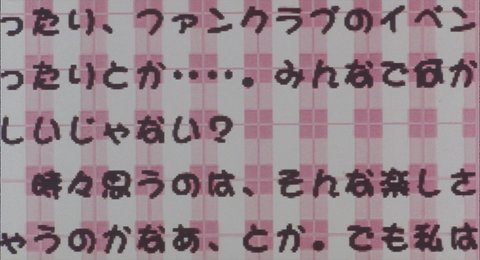 ったり、ファンクラブのイベン
ったりとか‥‥。みんなで何か
しいじゃない？
時々思うのは、そんな楽しさ
ゃうのかなあ、とか。でも私は